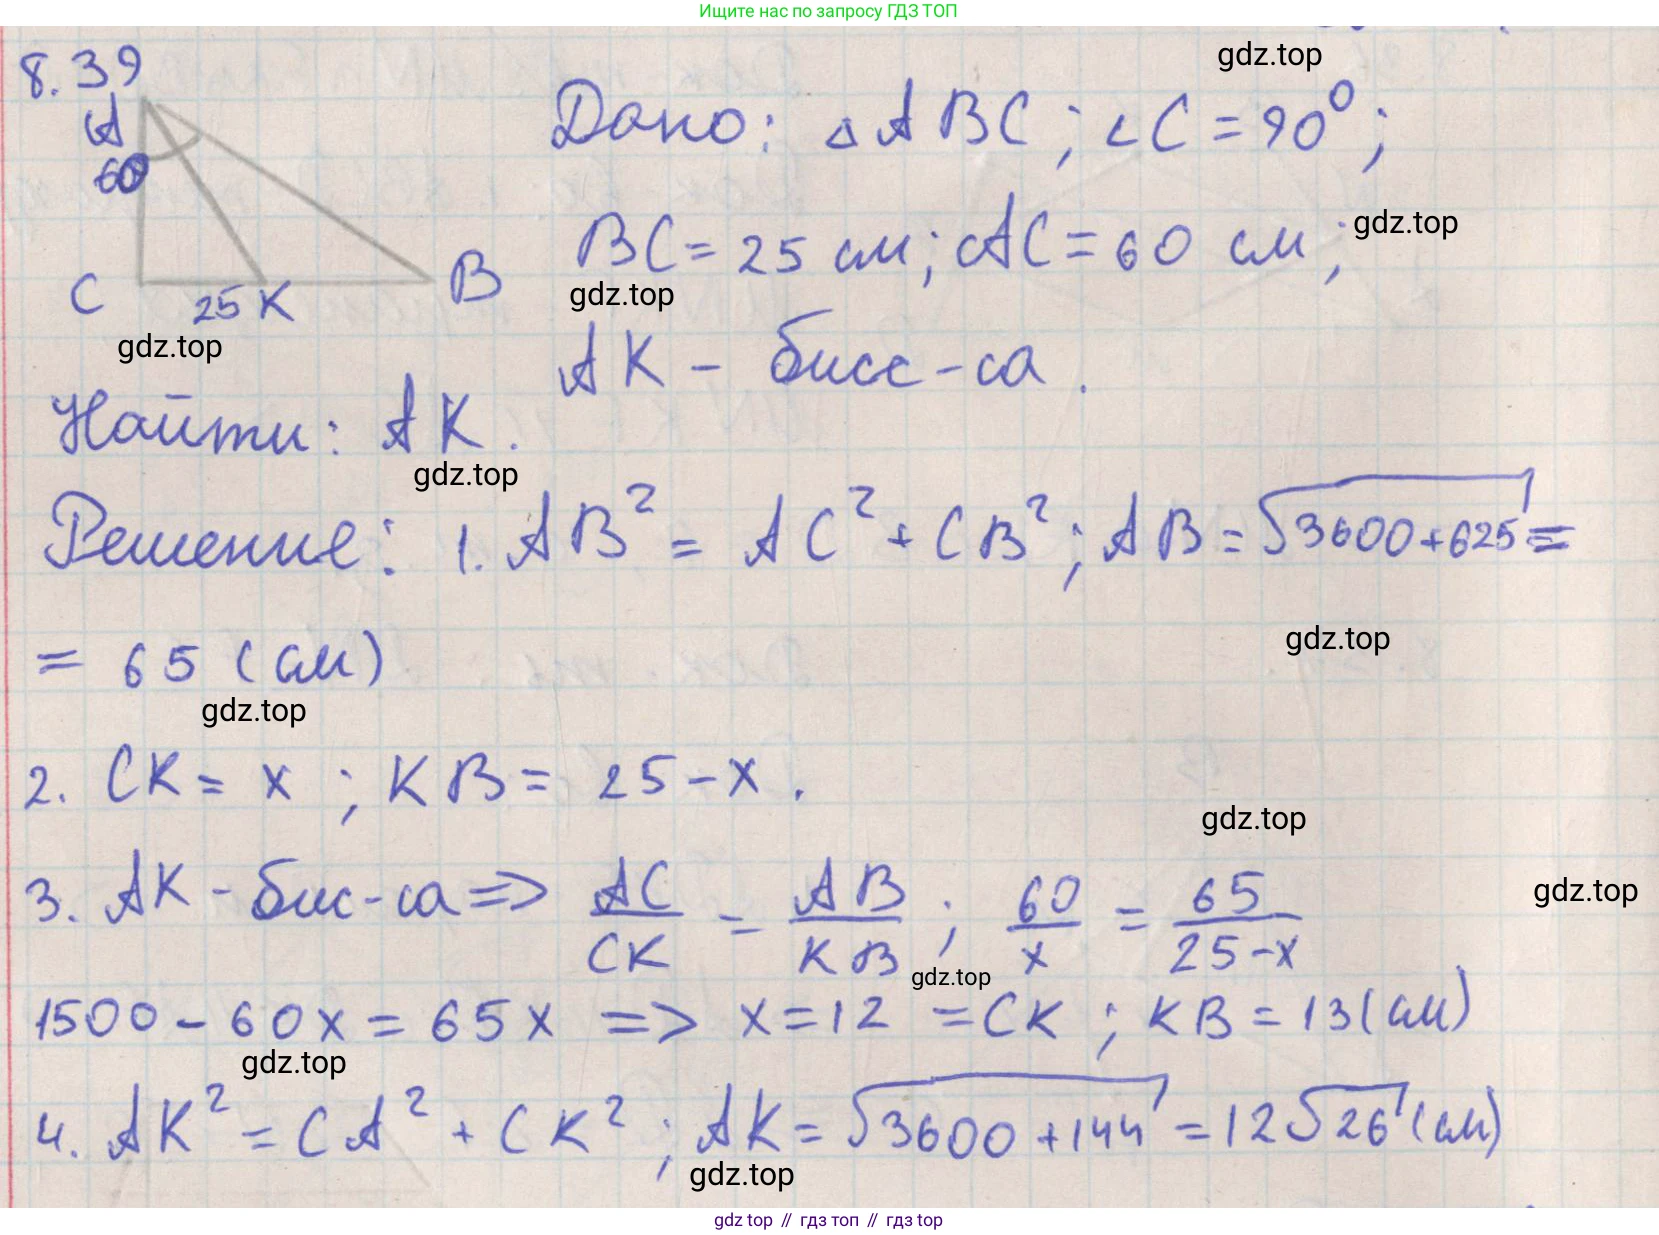 Ищите нас по запросу ГДЗ ТОП
8.39
gdz.top
A
Дано: △ABC; ∠C = 90⁰;
60
BC = 25 см; AC = 60 см;
gdz.top
C 25 K B
gdz.top
gdz.top
AK - бисс-са.
Найти: AK.
gdz.top
Решение: 1. AB² = AC² + CB²; AB = √3600+625 =
= 65 (см)
gdz.top
gdz.top
2. CK = x ; KB = 25 - x.
gdz.top
3. AK - бис-са => AC/CK = AB/KB ; 60/x = 65/25-x
gdz.top
gdz.top
1500 - 60x = 65x => x = 12 = CK ; KB = 13 (см)
gdz.top
4. AK² = CA² + CK² ; AK = √3600+144 = 12√26 (см)
gdz.top
gdz top // гдз топ // gdz top